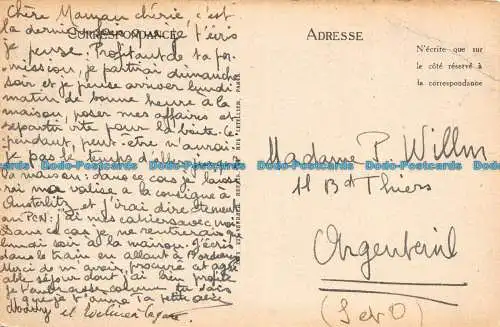 CORRESPONDANCE
Chère Maman chérie, c'est
la dernière fois que je t'écris
je pense. Profitant de ta per-
mission, je partirai dimanche
soir et je pense arriver lundi
matin de bonne heure à la
maison, poser mes affaires et
repartir vite pour la boîte. Ce-
pendant, peut-être n'aurai
je pas le temps d'aller jusqu'à
la maison: dans ce cas je laisse-
rai ma valise à la consigne à
Austerlitz et j'irai directement
au PCN: j'ai mes cahiers avec moi
Dans ce cas je ne rentrerai que
lundi soir à la maison. J'écris
dans le train en allant à Bordeaux
Merci de m'avoir procuré cet agré-
able séjour dont j'ai bien profité
Je t'embrasse comme tu sais
que je t'aime Ta petite
ADRESSE
N'écrite que sur
le côté réservé à
la correspondance
Madame P. Willm
11 Bd Thiers
Argenteuil
(S et O)
Dodo-Postcards